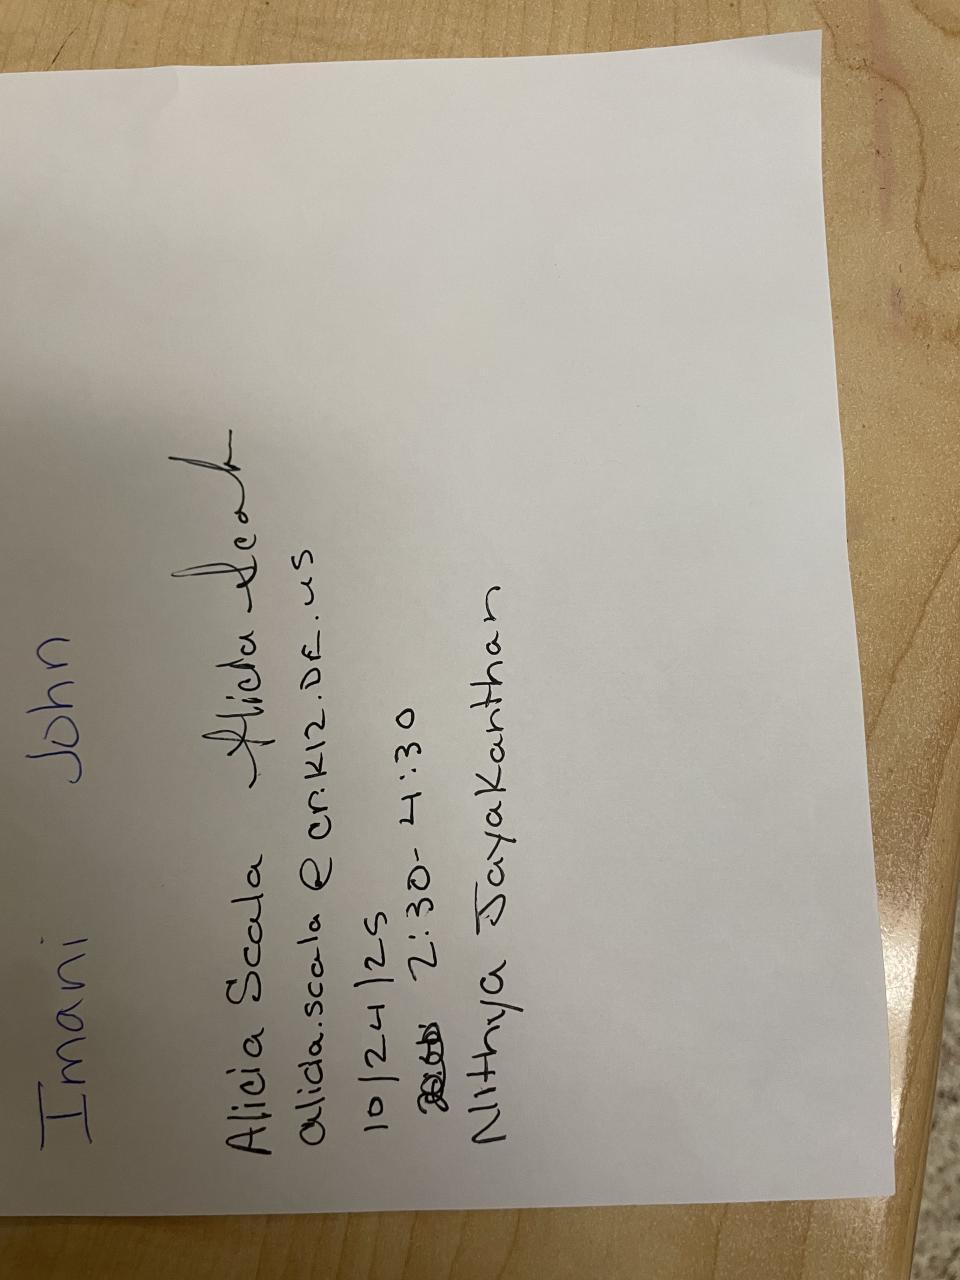 Imani John
Alicia Scala Alicia Scala
alicia.scala@cr.k12.DE.us
10/24/25
2:30-4:30
Nithya Jayakanthan